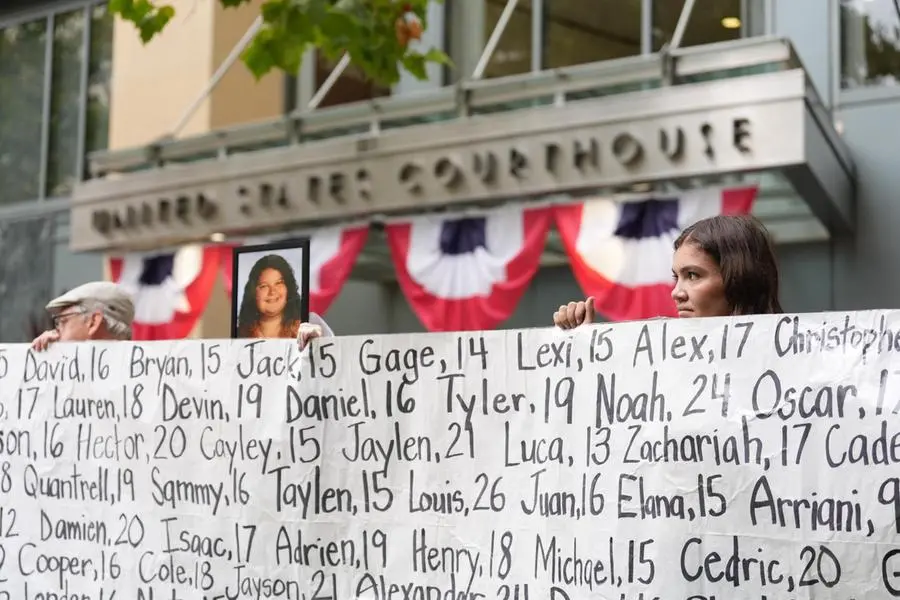 UNITED STATES COURTHOUSE
David,16 Bryan,15 Jack,15 Gage,14 Lexi,15 Alex,17
17 Lauren,18 Devin,19 Daniel,16 Tyler,19 Noah,24 Oscar,
16 Hector,20 Cayley,15 Jaylen,21 Luca,13 Zachariah,17
Quantrell,19 Sammy,16 Taylen,15 Louis,26 Juan,16 Elana,15 Arriani,
12 Damien,20 Isaac,17 Adrien,19 Henry,18 Michael,15 Cedric,20
Cooper,16 Cole,18 Jayson,21